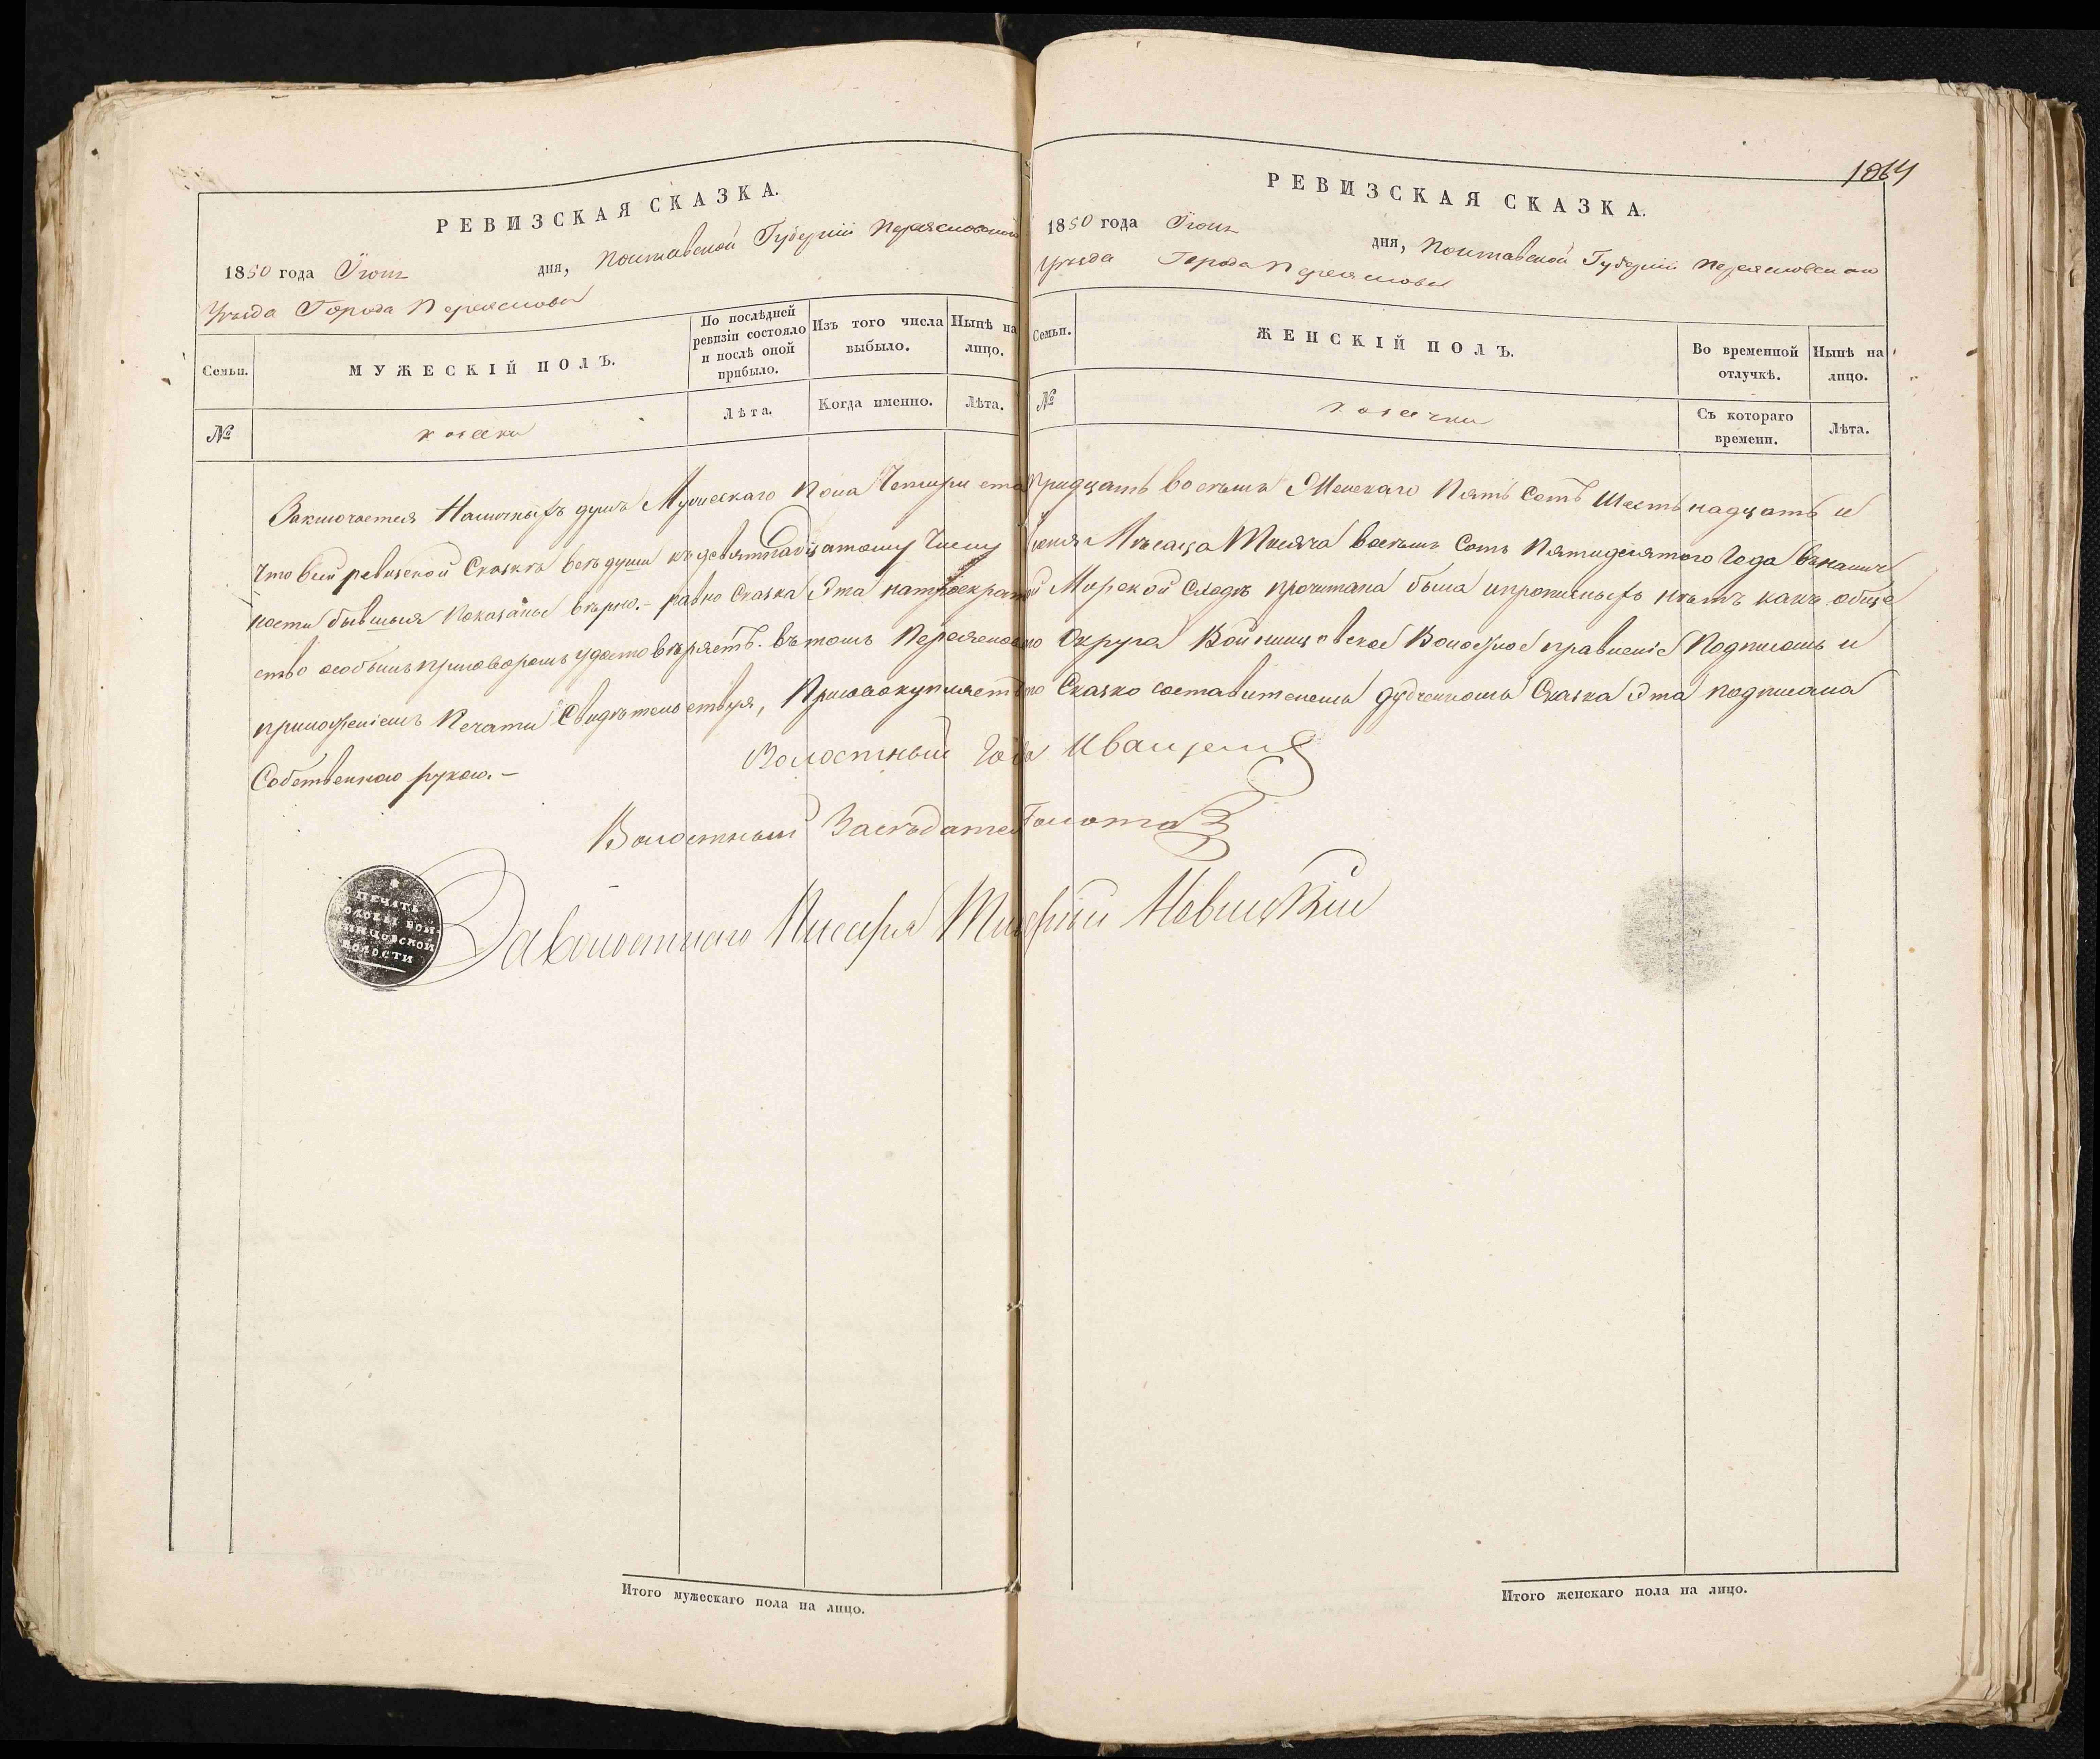 РЕВИЗСКАЯ СКАЗКА.
1850 года Іюнь дня, Полтавской Губерніи Переяславскаго
Уѣзда Города Переяслова
Семьи.
МУЖЕСКІЙ ПОЛЪ.
По послѣдней ревизіи состояло и послѣ оной прибыло.
Изъ того числа выбыло.
Нынѣ на лицо.
№
козаки
Лѣта.
Когда именно.
Лѣта.
1864
РЕВИЗСКАЯ СКАЗКА.
1850 года Іюнь дня, Полтавской Губерніи Переясловскаго
Уѣзда Города Переяслова
Семьи.
ЖЕНСКІЙ ПОЛЪ.
Во временной отлучкѣ.
Нынѣ на лицо.
№
козачки
Съ котораго времени.
Лѣта.
Заключается Наличныхъ душъ Мужескаго Пола Четыри ста Тридцать восемь Женскаго Пять Сотъ Шестьнадцать и
Что въсей ревизской Сказкѣ всѣ души къ девятнадцатому Числу Іюня Мѣсяца Тысяча восемь Сотъ Пятидесятого Года въналич
ности бывшыя показаные вѣрно.- равно Сказка Эта натроекратной Мирской Сходкѣ прочитана была ипрописныхъ нѣтъ какъ обще
ство особымъ приговоромъ удостовѣряетъ. вътомъ Переясловского Округа Войницовское Волосное правленіе Подписомъ и
приложеніемъ Печати Свидѣтельствуя, Присовокупляетъ что Сказко составителемъ Сказка Эта подписана
Собственною рукою.-
Волостный Голова Иващенко
Волостный Засѣдатель Голота
За волостнаго Писаря Новицкій
ПЕЧАТЬ
ГОЛОВЫ ВОЙ-
НИНЦОВСКОЙ
ВОЛОСТИ
Итого мужескаго пола на лицо.
Итого женскаго пола на лицо.